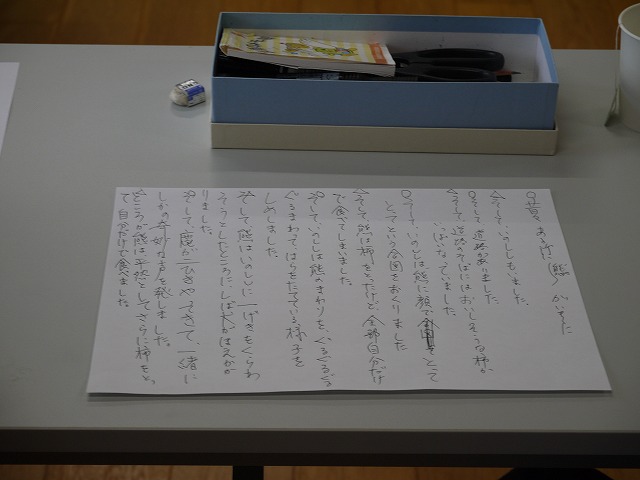 〇昔 ある所に(熊)がいました
△そして、いのししもいました。
〇そして道路がありました
△そして、道路のそばにはおいしそうな柿が
いっぱいなっていました。
〇そして、いのししは熊に顔で合図をとって
とってという合図をおくりました
△そして、熊は柿をとったけど、全部自分だけ
で食べてしまいました。
〇そして、いのししは熊のまわりを、ぐるぐるぐる
ぐるまわって、はらをたてている様子を
しめしました。
△そして、熊はいのししに一げきをくらわ
そうとしたところに、しば犬がほえかか
りました。
〇そして、鹿が一ぴきやってきて、一緒に
しかの奇妙な声を発しました。
△ところが熊は平然としてさらに柿をとっ
て自分だけで食べました。